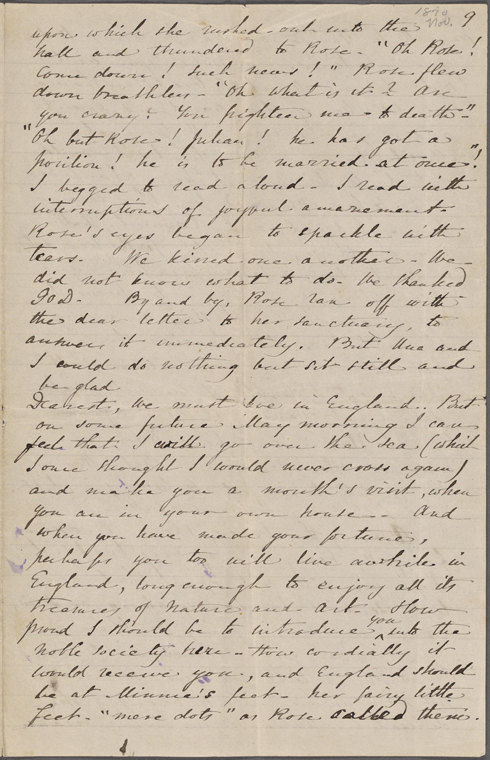 1870
Nov. 9
upon which she rushed out into the
hall and thundered to Rose - "Oh Rose!
Come down! Such news!" Rose flew
down breathless - "Oh what is it? Are
you crazy? You frighten me to death -"
"Oh but Rose! Julian! he has got a
position! he is to be married at once"!
I begged to read aloud - I read with
interruptions of joyful amazement.
Rose's eyes began to sparkle with
tears. We kissed one another - We
did not know what to do - We thanked
GOD - By and by, Rose ran off with
the dear letter to her sanctuary, to
answer it immediately. But Una and
I could do nothing but sit still and
be glad
Dearest, we must live in England. But
on some future May morning I can
feel that I will go over the sea (which
I once thought I would never cross again)
and make you a month's visit, when
you are in your own house - And
when you have made your fortune,
perhaps you too will live awhile in
England, long enough to enjoy all its
treasures of Nature and Art - How
proud I should be to introduce you into the
noble society here - How cordially it
would receive you, and England should
be at Minnie's feet - her fairy little
feet - "mere dots" as Rose called them.